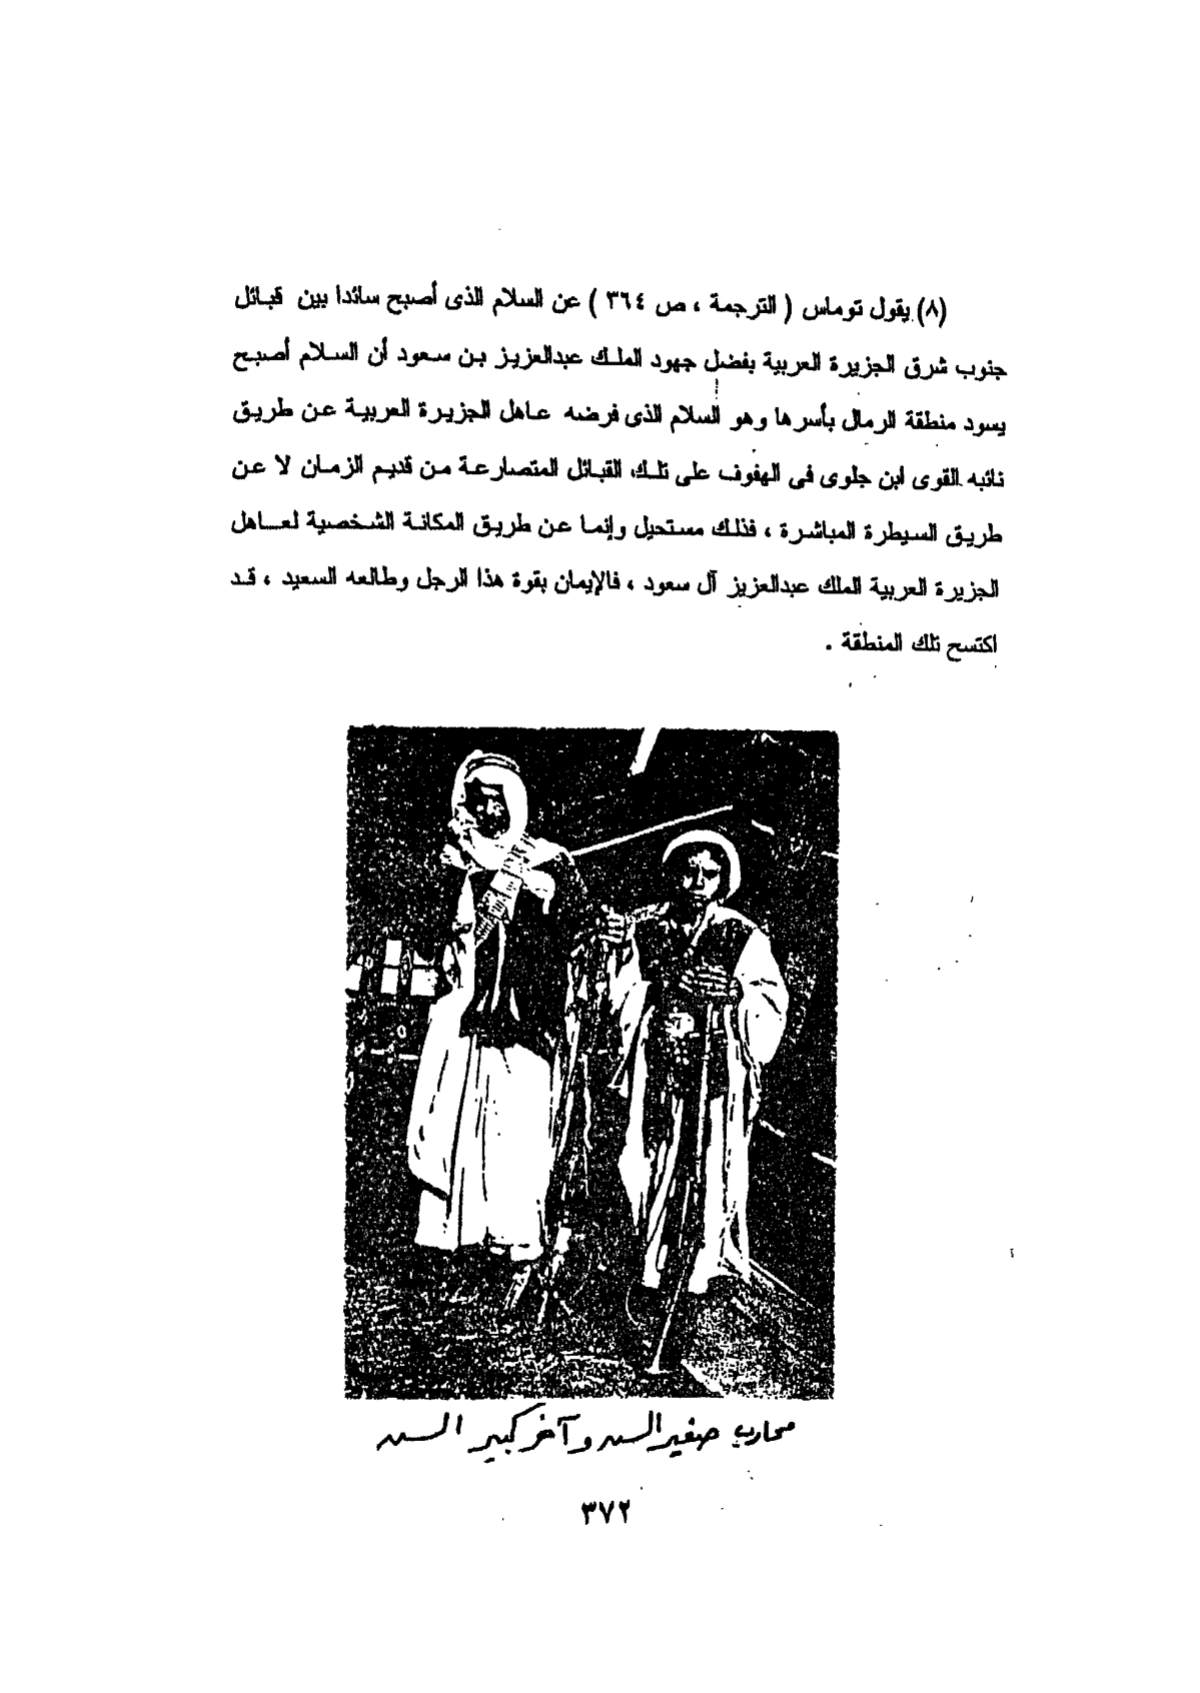 (٨) يقول توماس ( الترجمة ، ص ٣٦٤ ) عن السلام الذى أصبح سائدا بين قبائل
جنوب شرق الجزيرة العربية بفضل جهود الملك عبدالعزيز بن سعود أن السلام أصبح
يسود منطقة الرمال بأسرها وهو السلام الذى فرضه عاهل الجزيرة العربية عن طريق
نائبه القوى ابن جلوى فى الهفوف على تلك القبائل المتصارعة من قديم الزمان لا عن
طريق السيطرة المباشرة ، فذلك مستحيل وإنما عن طريق المكانة الشخصية لعاهل
الجزيرة العربية الملك عبدالعزيز آل سعود ، فالإيمان بقوة هذا الرجل وطالعه السعيد ، قد
اكتسح تلك المنطقة .
محارب صغير السن وآخر كبير السن
٣٧٢